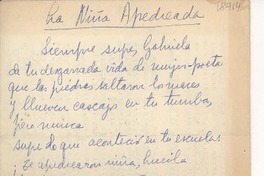 La Niña Apedreada
Siempre supe, Gabriela
de tu desgarrada vida de mujer-poeta
que las piedras saltaron los mares
y llueven cascajos en tu tumba,
pero nunca
supe lo que aconteció en tu escuela:
Te apedrearon niña,